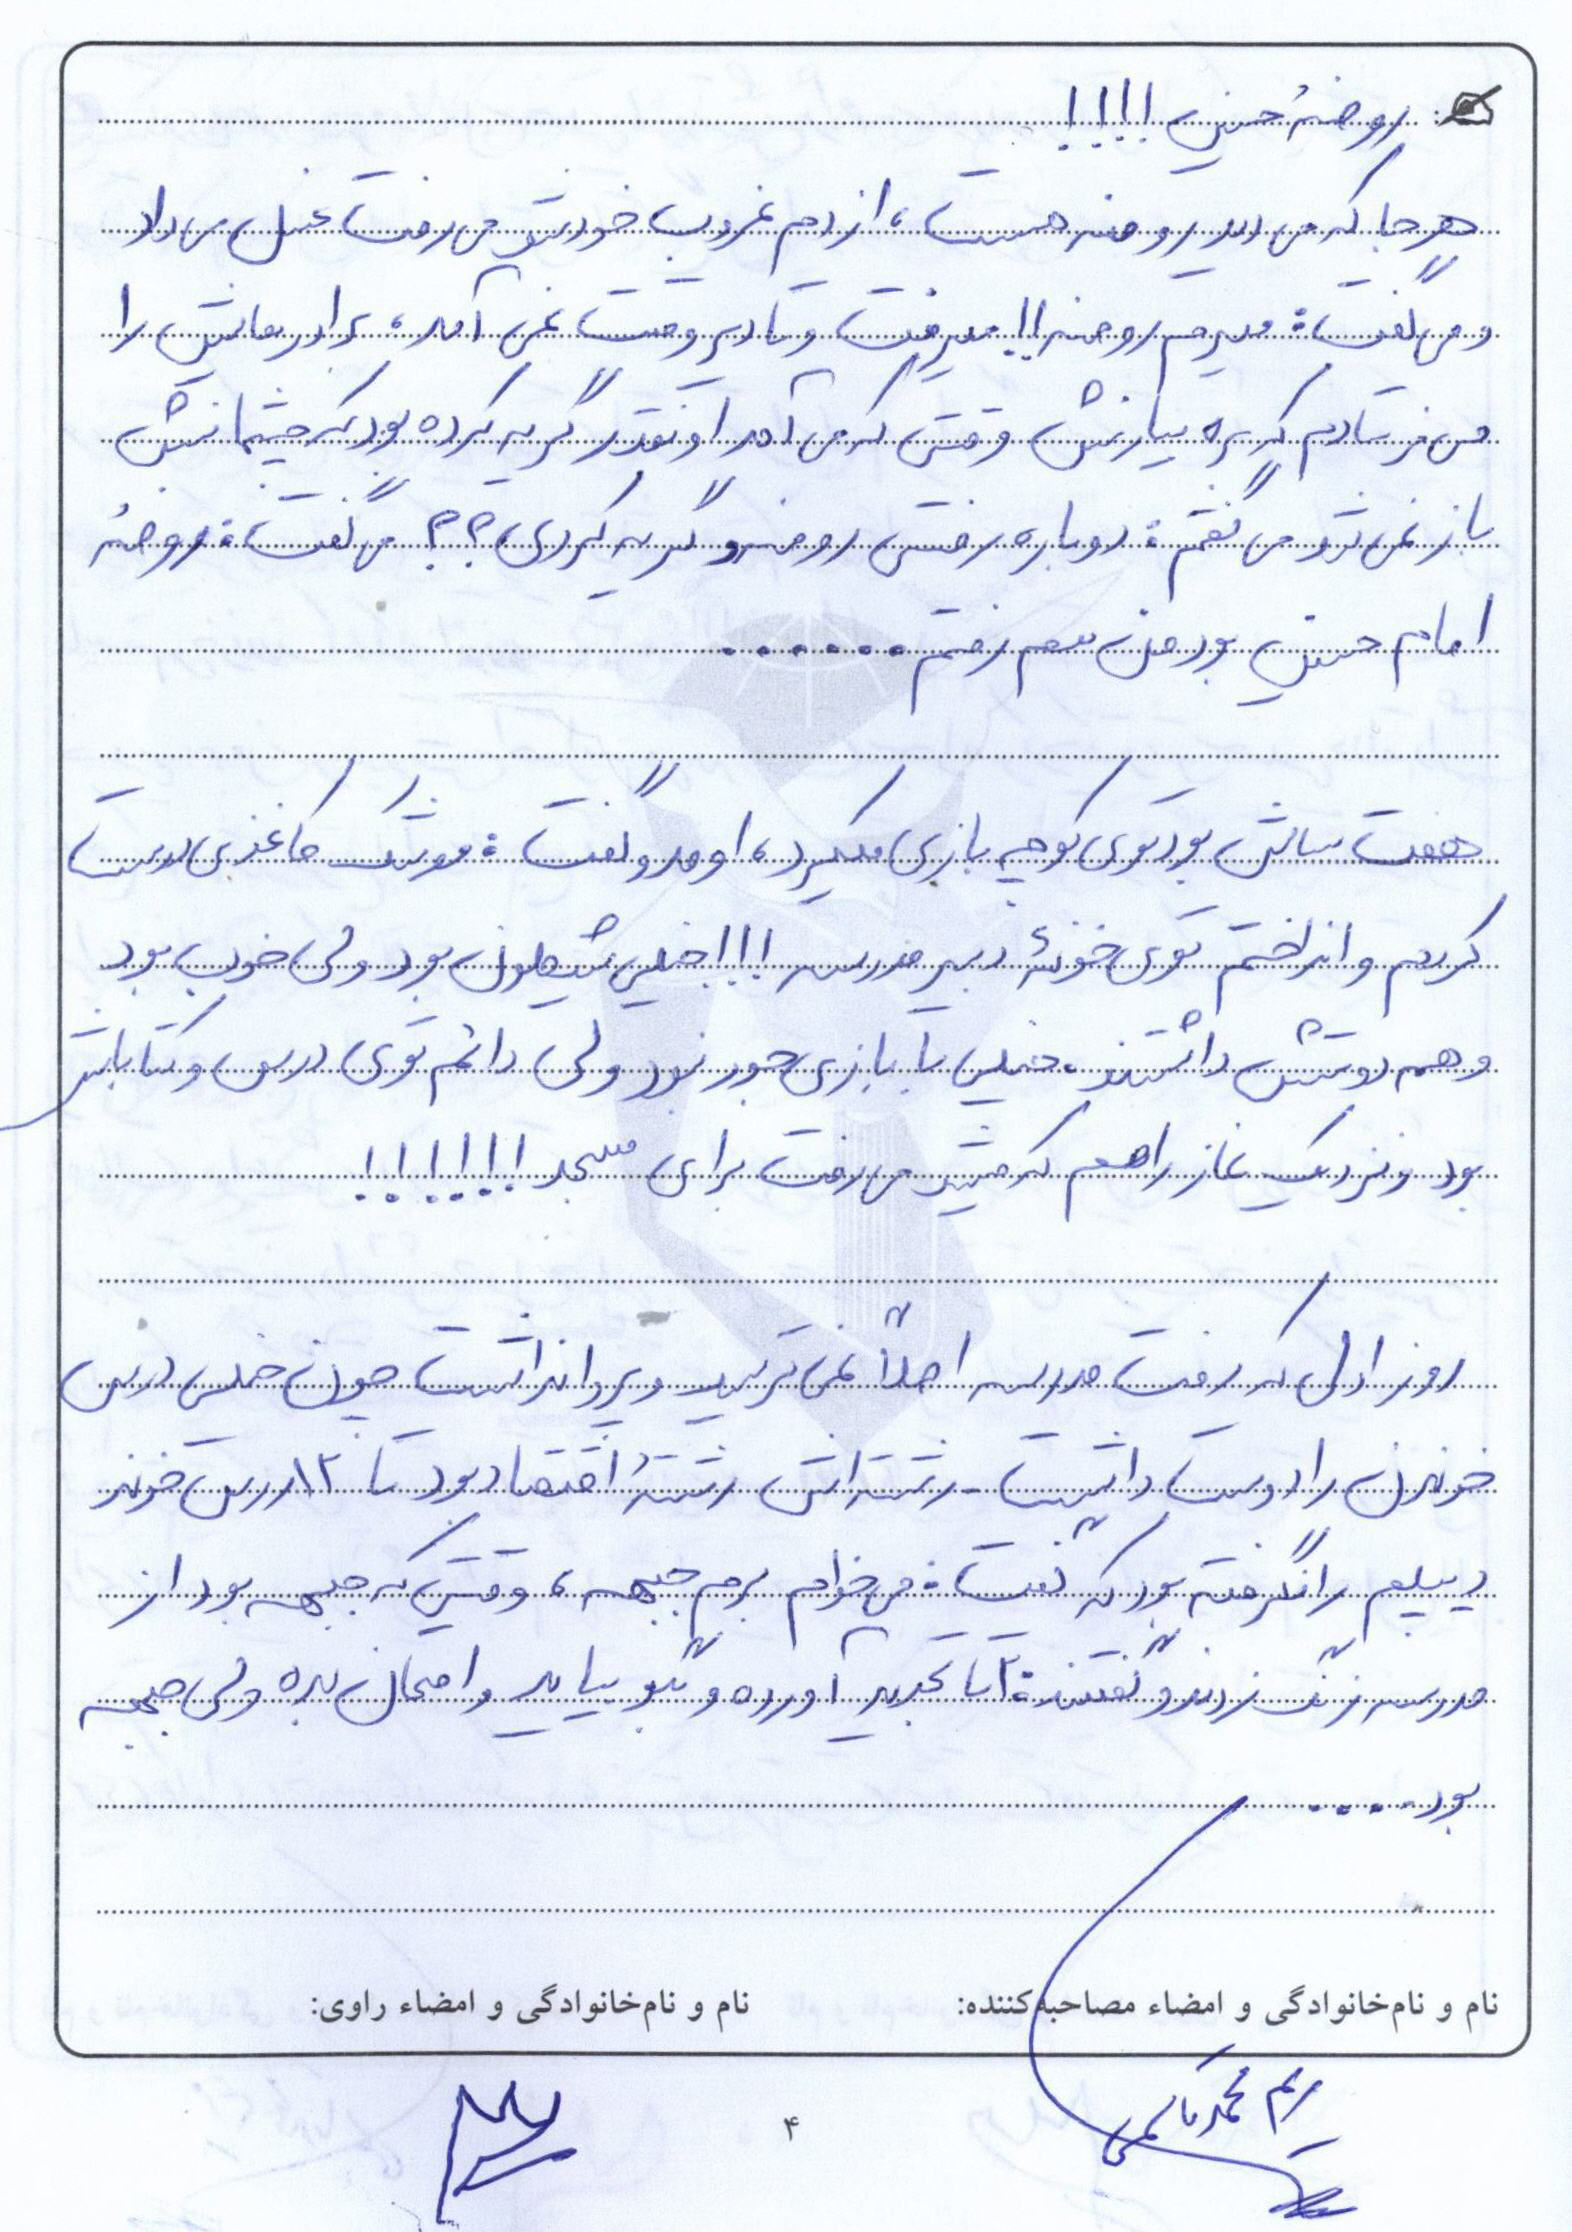 روضهٔ حسین !!!!
هر جا که می دید روضه هست ، از دم غروب خودش می رفت غسل می داد
و می گفت : میرم روضه !! میرفت و تا دیر وقت نمی آمد ، برادرهایش را
می فرستادم که بره بیارنش وقتی که می آمد اونقدر گریه کرده بود که چشمانش
باز نمی شد و می گفتم : دوباره رفتی روضه و گریه کردی ؟؟ می گفت : روضهٔ
امام حسین بود من هم رفتم ......
هفت سالش بود توی کوچه بازی میکرد ، اومد و گفت : موشک کاغذی درست
کردیم و انداختم توی خونهٔ دبیر مدرسه !!! خیلی شیطون بود ولی خوب بود
و همه دوستش داشتند . خیلی با بازی جور نبود ولی دائم توی درس و کتاباش
بود و نزدیک نماز را هم که میشد می رفت برای مسجد !!!!!!
روز اول که رفت مدرسه اصلاً نمی ترسید و پروا نداشت چون خیلی درس
خوندن را دوست داشت - رشته اش رشتهٔ اقتصاد بود تا ۱۲ درس خوند
دیپلم را نگرفته بود که گفت : می خوام برم جبهه ، وقتی که جبهه بود از
مدرسه زنگ زدند و گفتند : آقا تجدید آورده و بگو بیاید و امتحان بده ولی جبهه
بود ....
نام و نام‌خانوادگی و امضاء مصاحبه‌کننده:
نام و نام‌خانوادگی و امضاء راوی:
۴